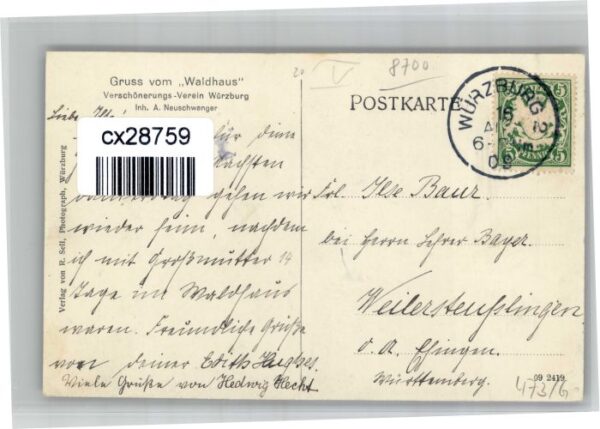 Gruss vom „Waldhaus"
Verschönerungs-Verein Würzburg
Inh. A. Neuschwenger
POSTKARTE
8700
V
WÜRZBURG 2
15
6-
09
5
5
PFENNIG
Verlag von R. Sell, Photograph, Würzburg
cx28759
Liebe
für deine
nächsten
Donnerstag gehen wir
wieder heim, nachdem
ich mit Großmutter 14
Tage im Waldhaus
waren. Freundliche Grüße
von deiner Edith Hughes.
Viele Grüße von Hedwig Hecht
Frl. Ilse Baur.
bei Herrn Lehrer Bayer.
Weilersteusslingen
o. A. Ehingen.
Württemberg.
09 2419
473/6